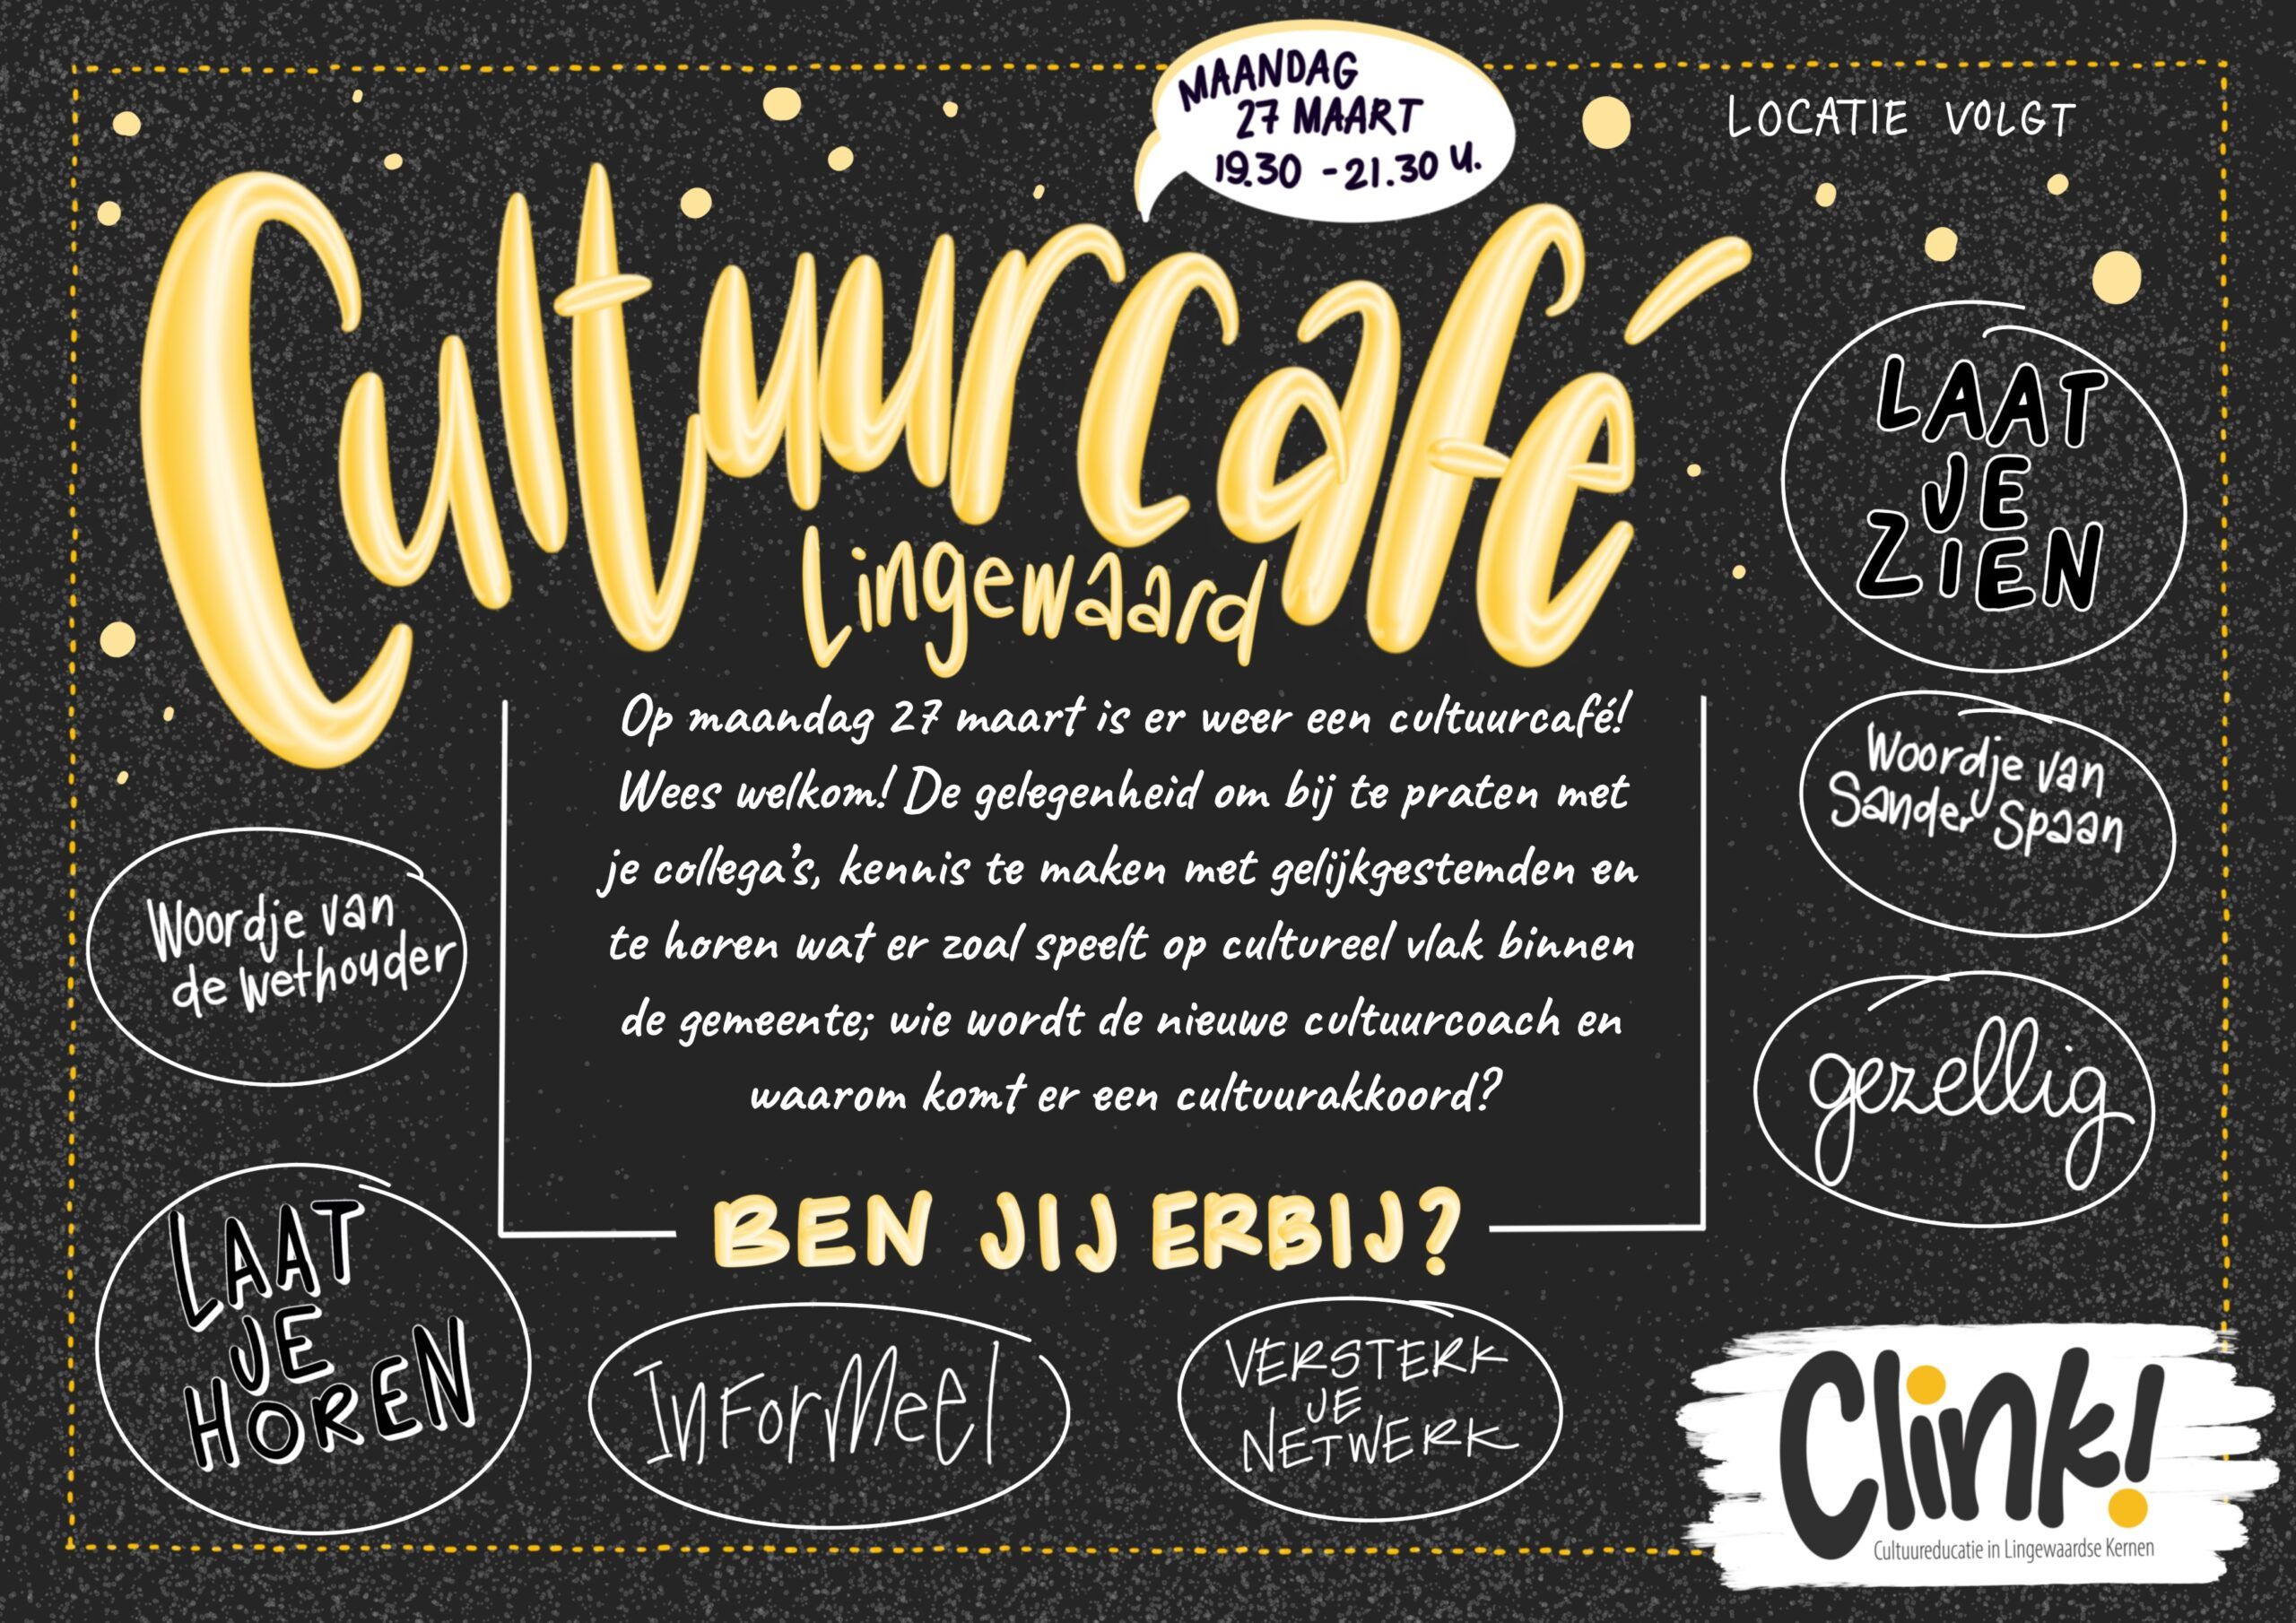 MAANDAG
27 MAART
19.30 - 21.30 U.
LOCATIE VOLGT
Cultuurcafé
Lingewaard
LAAT
JE
ZIEN
Op maandag 27 maart is er weer een cultuurcafé!
Wees welkom! De gelegenheid om bij te praten met
je collega's, kennis te maken met gelijkgestemden en
te horen wat er zoal speelt op cultureel vlak binnen
de gemeente; wie wordt de nieuwe cultuurcoach en
waarom komt er een cultuurakkoord?
Woordje van
Sander Spaan
Woordje van
de wethouder
gezellig
BEN JIJ ERBIJ?
LAAT
JE
HOREN
InForMeel
VERSTERK
JE
NETWERK
Clink!
Cultuureducatie in Lingewaardse Kernen